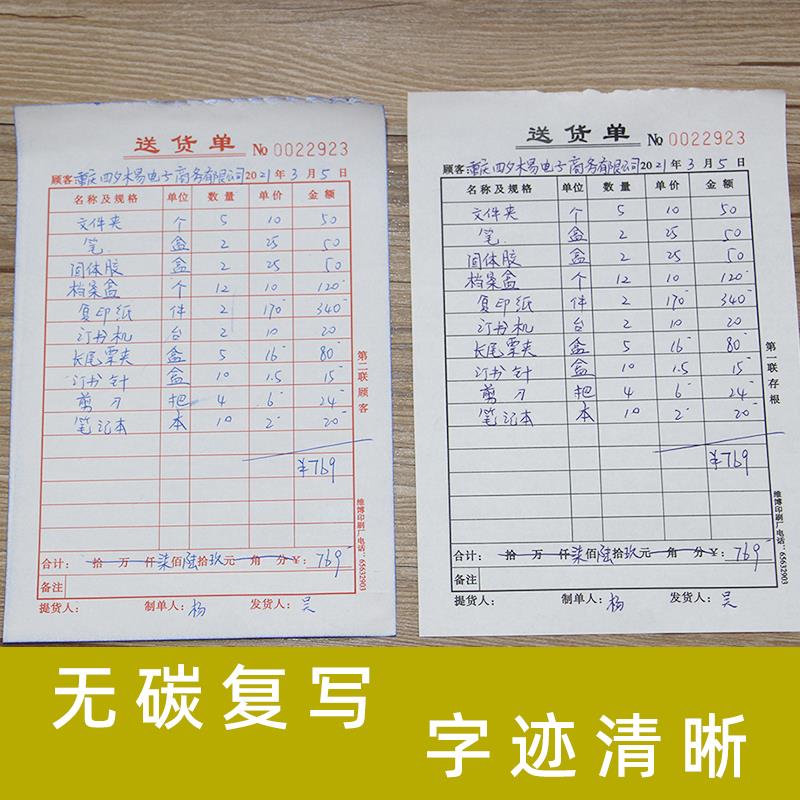 送货单 No 0022923
顾客 重庆四夕木易电子商务有限公司 2021年3月5日
名称及规格 单位 数量 单价 金额
文件夹 个 5 10 50
笔 盒 2 25 50
固体胶 盒 2 25 50
档案盒 个 12 10 120
复印纸 件 2 170 340
订书机 台 2 10 20
长尾票夹 盒 5 16 80
订书针 盒 10 1.5 15
剪刀 把 4 6 24
笔记本 本 10 2 20
¥769
合计: 拾 万 仟柒佰陆拾玖元 角 分¥: 769
备注
提货人: 制单人: 杨 发货人: 吴
第二联顾客
维博印刷厂电话:65632903
送货单 No 0022923
顾客 重庆四夕木易电子商务有限公司 2021年3月5日
名称及规格 单位 数量 单价 金额
文件夹 个 5 10 50
笔 盒 2 25 50
固体胶 盒 2 25 50
档案盒 个 12 10 120
复印纸 件 2 170 340
订书机 台 2 10 20
长尾票夹 盒 5 16 80
订书针 盒 10 1.5 15
剪刀 把 4 6 24
笔记本 本 10 2 20
¥769
合计: 拾 万 仟柒佰陆拾玖元 角 分¥: 769
备注
提货人: 制单人: 杨 发货人: 吴
第一联存根
维博印刷厂电话:65632903
无碳复写
字迹清晰